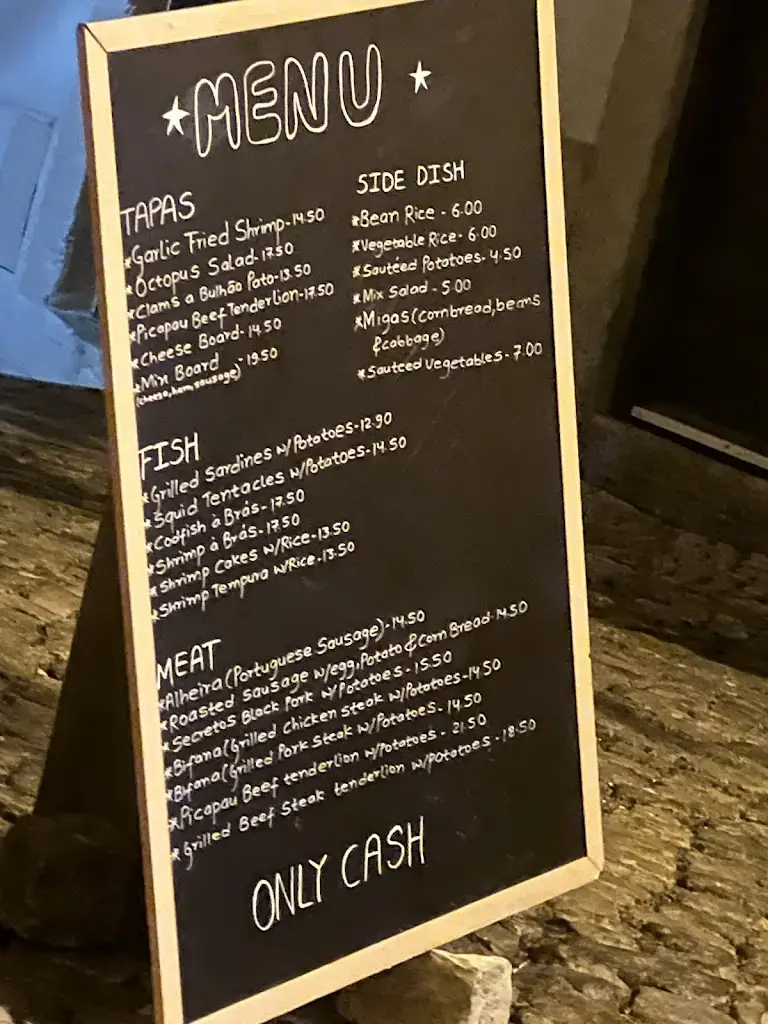 MENU
TAPAS
*Garlic Fried Shrimp-14.50
*Octopus Salad-17.50
*Clams a Bulhão Pato-13.50
*Picapau Beef Tenderlion-17.50
*Cheese Board-14.50
*Mix Board -19.50
(cheese, ham, sausage)
SIDE DISH
*Bean Rice - 6.00
*Vegetable Rice- 6.00
*Sautéed Potatoes- 4.50
*Mix Salad - 5.00
*Migas (cornbread, beans
&cabbage)
*Sauteed Vegetables - 7.00
FISH
*Grilled Sardines w/Potatoes-12.90
*Squid Tentacles w/Potatoes-14.50
*Codfish à Brás-17.50
*Shrimp à Brás-17.50
*Shrimp Cakes w/Rice-13.50
*Shrimp Tempura w/Rice-13.50
MEAT
*Alheira (Portuguese Sausage)-14.50
*Roasted Sausage w/egg, Potato & Corn Bread-14.50
*Secretos Black Pork w/Potatoes - 15.50
*Bifana (Grilled Chicken Steak w/Potatoes-14.50
*Bifana (Grilled Pork Steak w/Potatoes-14.50
*Picapau Beef tenderlion w/potatoes - 21.50
*Grilled Beef Steak tenderlion w/potatoes -18.50
ONLY CASH